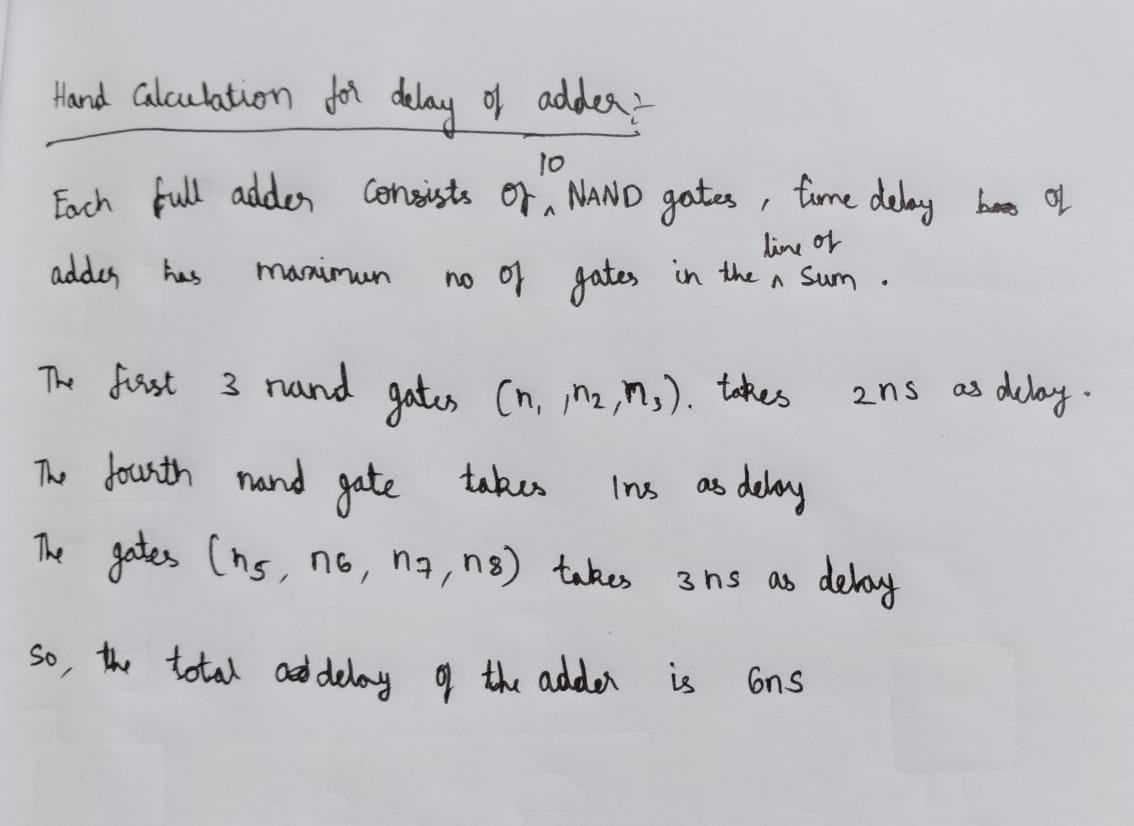 Hand Calculation for delay of adder:-
Each full adder consists of ^ 10 NAND gates, time delay of
adder has maximum no of gates in the ^ line of sum.
The first 3 nand gates (n1, n2, n3). takes 2ns as delay.
The fourth nand gate takes 1ns as delay
The gates (n5, n6, n7, n8) takes 3ns as delay
So, the total delay of the adder is 6ns